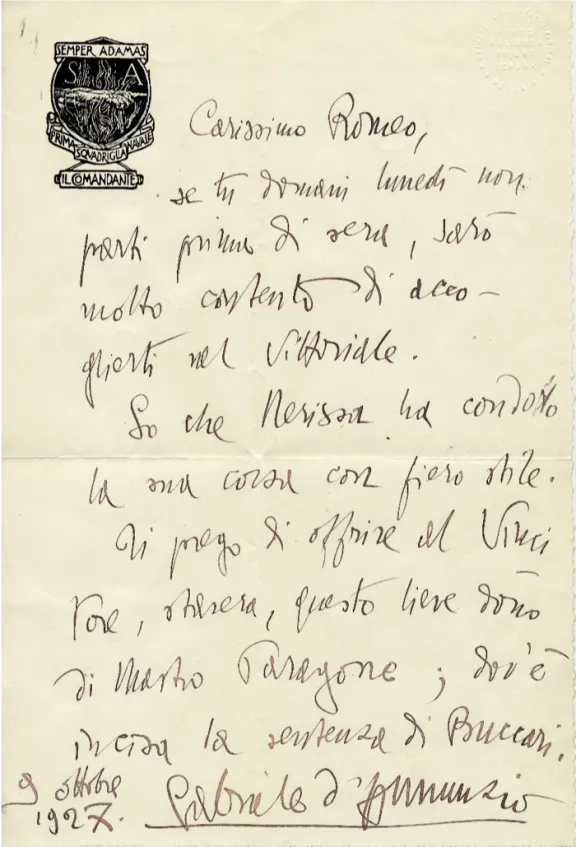 SEMPER ADAMAS
S A
PRIMA SQVADRIGLIA NAVALE
IL COMANDANTE
Carissimo Romeo,
se tu domani lunedì non
parti prima di sera, sarò
molto contento di acco-
glierti nel Vittoriale.
So che Nerissa ha condotto
la sua corsa con fiero stile.
Ti prego di offrire al Vinci
tore, stasera, questo lieve dono
di Mastro Paragone; dov'è
incisa la sentenza di Buccari.
9 ottobre
1927.
Gabriele d'Annunzio